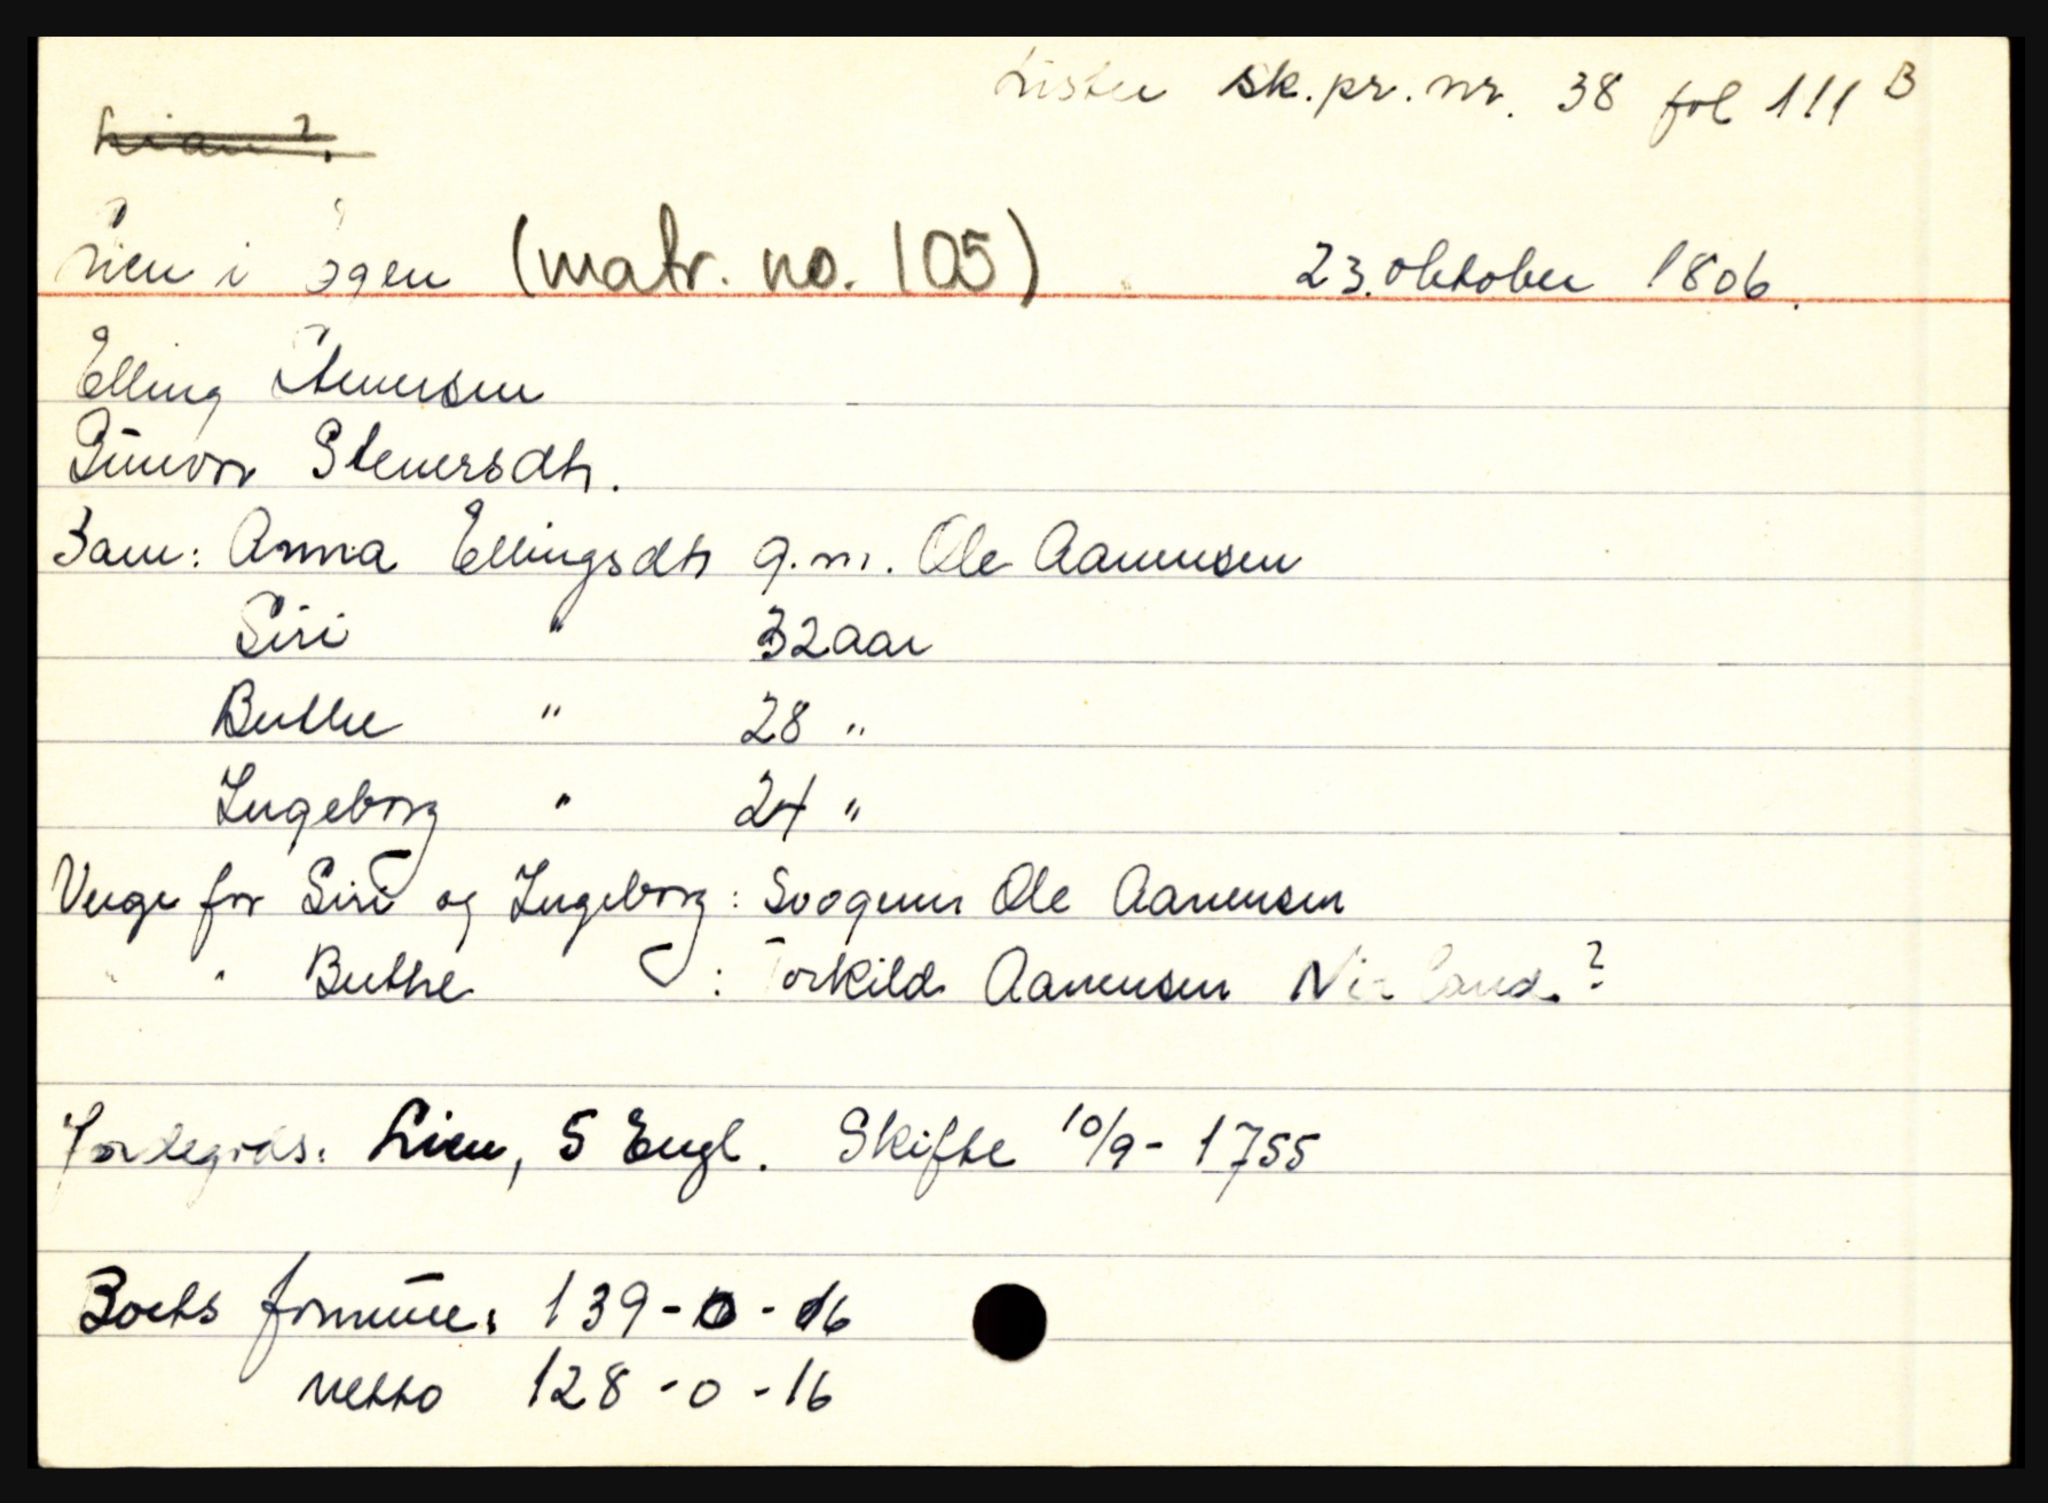 Lister sk.pr.nr. 38 fol 111 B
Lian?.
Lien i Egen (matr. no. 105) 23. oktober 1806.
Elling Stenersen
Gunvor Stenersdtr.
Barn: Anna Ellingsdtr g.m. Ole Aanensen
Siri " 32 aar
Berthe " 28 "
Ingeborg " 24 "
Verge for Siri og Ingeborg: Svogeren Ole Aanensen
" " Berthe : Torkild Aanensen Nirland?
Jordegods: Lien, 5 Engl. Skifte 10/9 - 1755
Boets formue: 139 - 0 - 16
netto 128 - 0 - 16